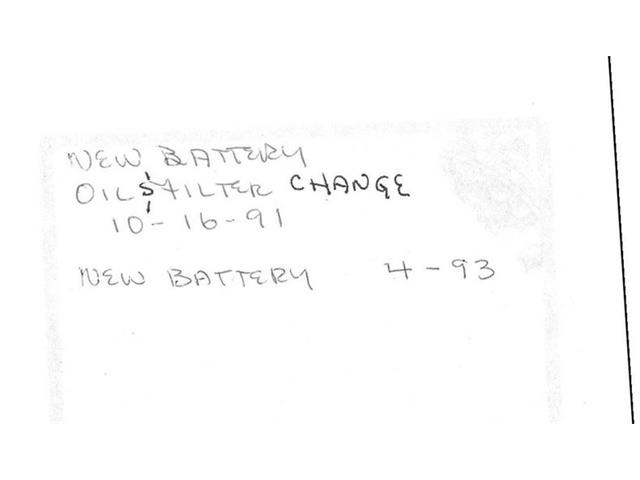 NEW BATTERY
OIL & FILTER CHANGE
10-16-91
NEW BATTERY 4-93